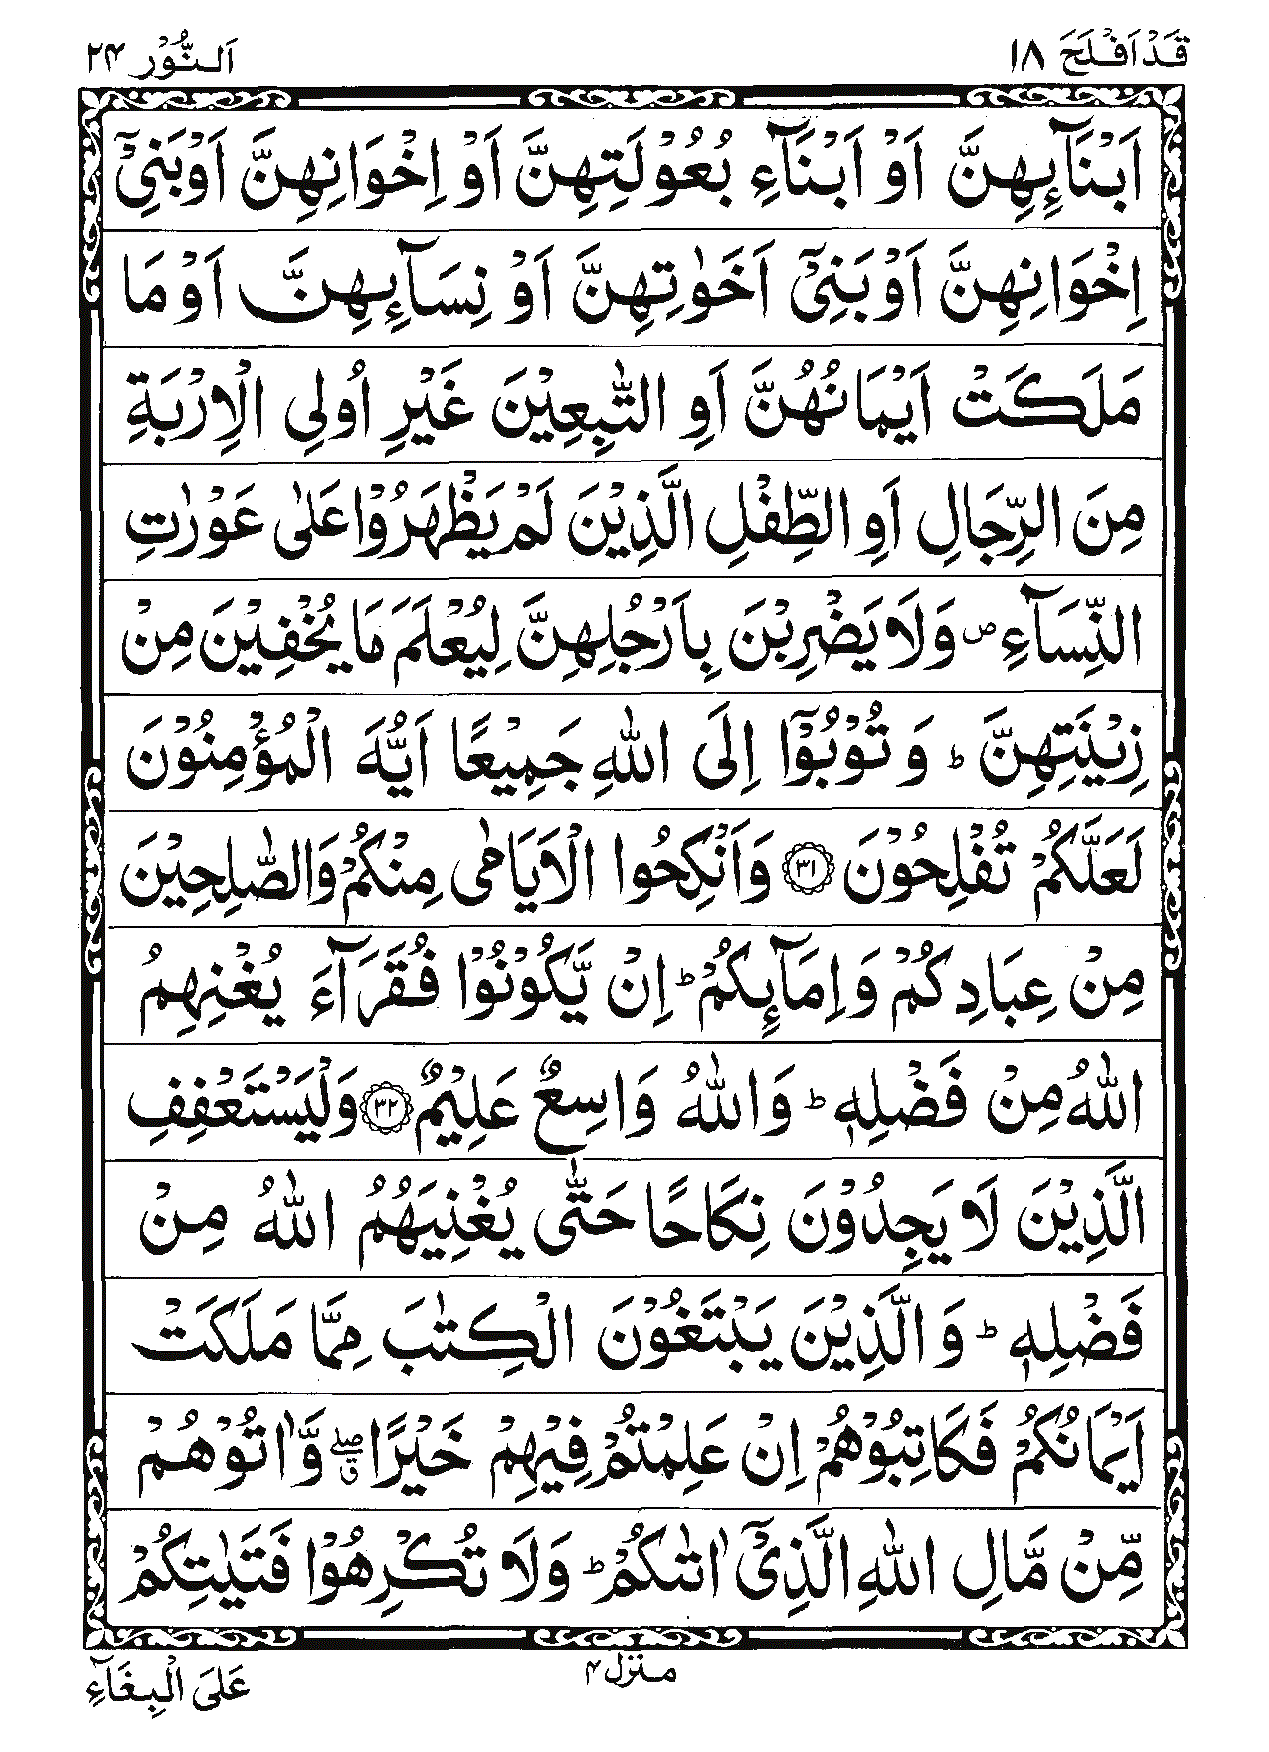 قَدْ اَفْلَحَ ١٨
اَلنُّوْر ٢۴
اَبْنَآىِٕهِنَّ اَوْ اَبْنَآءِ بُعُوْلَتِهِنَّ اَوْ اِخْوَانِهِنَّ اَوْ بَنِیْۤ
اِخْوَانِهِنَّ اَوْ بَنِیْۤ اَخَوٰتِهِنَّ اَوْ نِسَآىِٕهِنَّ اَوْ مَا
مَلَكَتْ اَیْمَانُهُنَّ اَوِ التّٰبِعِیْنَ غَیْرِ اُولِی الْاِرْبَةِ
مِنَ الرِّجَالِ اَوِ الطِّفْلِ الَّذِیْنَ لَمْ یَظْهَرُوْا عَلٰی عَوْرٰتِ
النِّسَآءِ ۪ وَلَا یَضْرِبْنَ بِاَرْجُلِهِنَّ لِیُعْلَمَ مَا یُخْفِیْنَ مِنْ
زِیْنَتِهِنَّ ؕ وَ تُوْبُوْۤا اِلَی اللّٰهِ جَمِیْعًا اَیُّهَ الْمُؤْمِنُوْنَ
لَعَلَّكُمْ تُفْلِحُوْنَ ۝٣١ وَاَنْكِحُوا الْاَیَامٰی مِنْكُمْ وَالصّٰلِحِیْنَ
مِنْ عِبَادِكُمْ وَاِمَآىِٕكُمْ ؕ اِنْ یَّكُوْنُوْا فُقَرَآءَ یُغْنِهِمُ
اللّٰهُ مِنْ فَضْلِهٖ ؕ وَاللّٰهُ وَاسِعٌ عَلِیْمٌ ۝٣٢ وَلْیَسْتَعْفِفِ
الَّذِیْنَ لَا یَجِدُوْنَ نِكَاحًا حَتّٰی یُغْنِیَهُمُ اللّٰهُ مِنْ
فَضْلِهٖ ؕ وَالَّذِیْنَ یَبْتَغُوْنَ الْكِتٰبَ مِمَّا مَلَكَتْ
اَیْمَانُكُمْ فَكَاتِبُوْهُمْ اِنْ عَلِمْتُمْ فِیْهِمْ خَیْرًا ۖۗ وَّاٰتُوْهُمْ
مِّنْ مَّالِ اللّٰهِ الَّذِیْۤ اٰتٰىكُمْ ؕ وَلَا تُكْرِهُوْا فَتَیٰتِكُمْ
منزل ۴
عَلَی الْبِغَآءِ